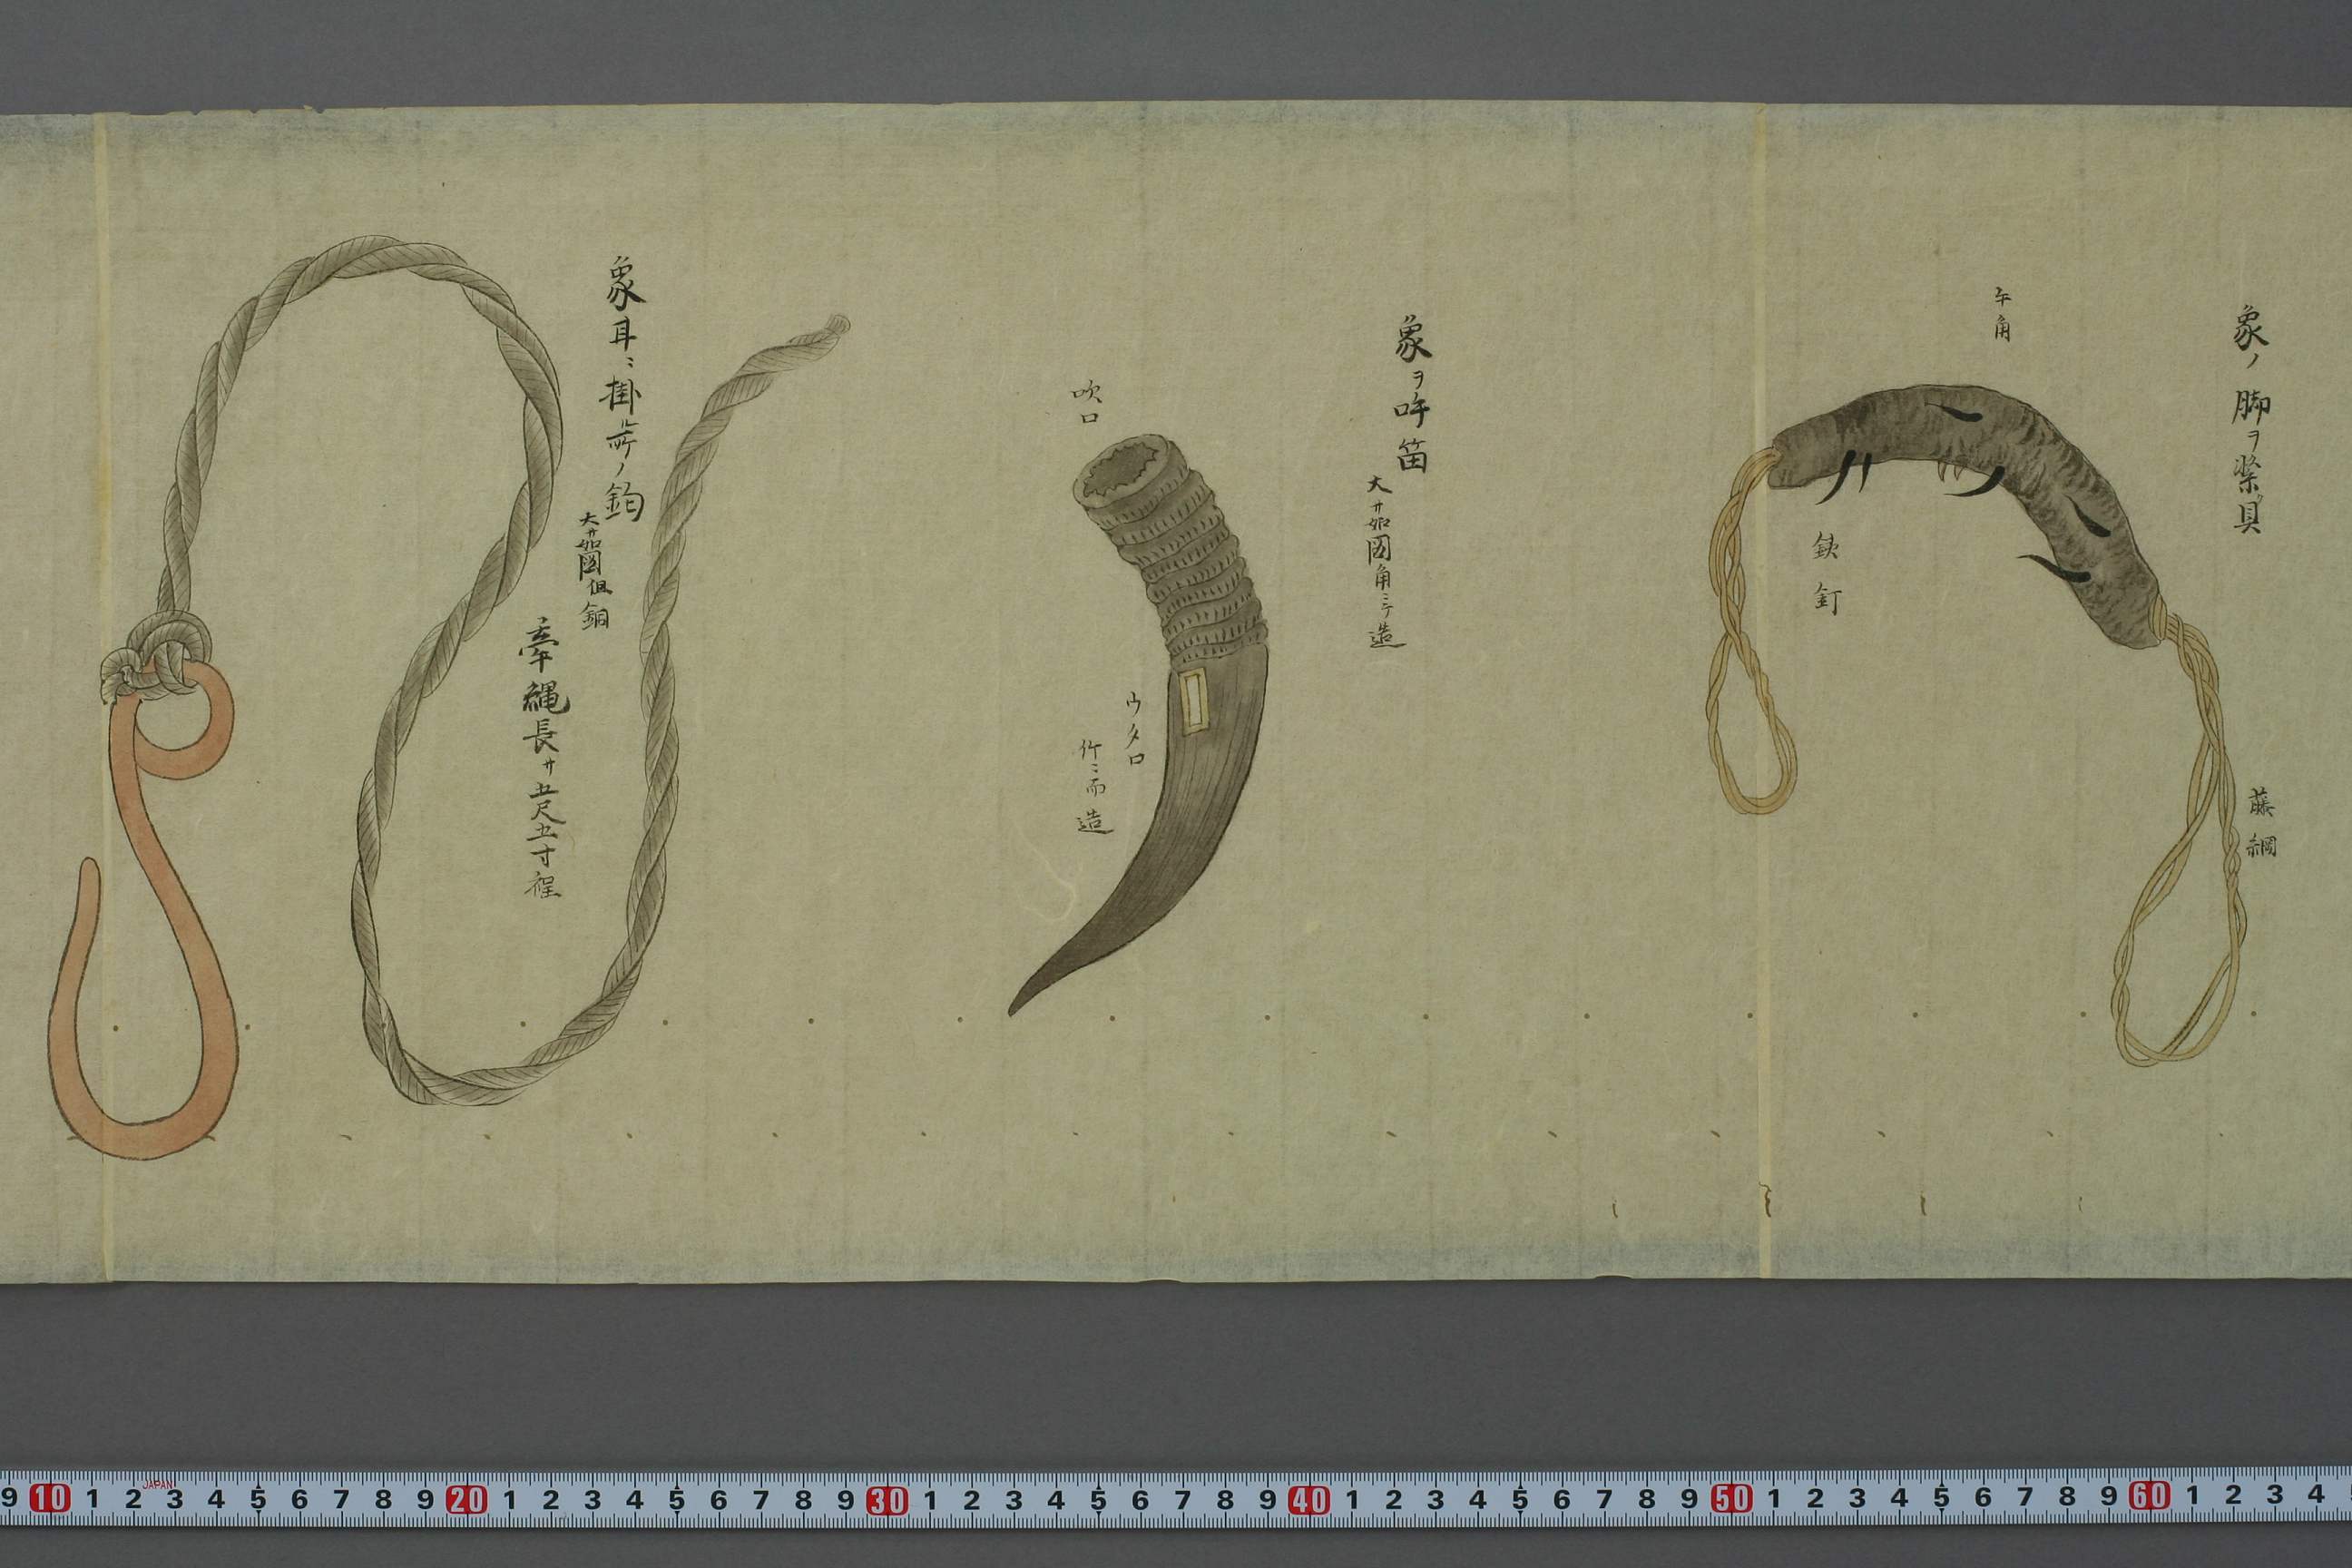 象ノ脚ヲ繋具
藤綱
牛角
鉄釘
象ヲ呼笛
大サ如図角ニテ造
吹口
ウタ口
竹ニ而造
象耳ニ掛ル所ノ鈎
大サ如図但銅
牽縄長サ五尺五寸程
9 10 1 2 3 4 5 6 7 8 9 20 1 2 3 4 5 6 7 8 9 30 1 2 3 4 5 6 7 8 9 40 1 2 3 4 5 6 7 8 9 50 1 2 3 4 5 6 7 8 9 60 1 2 3 4
JAPAN